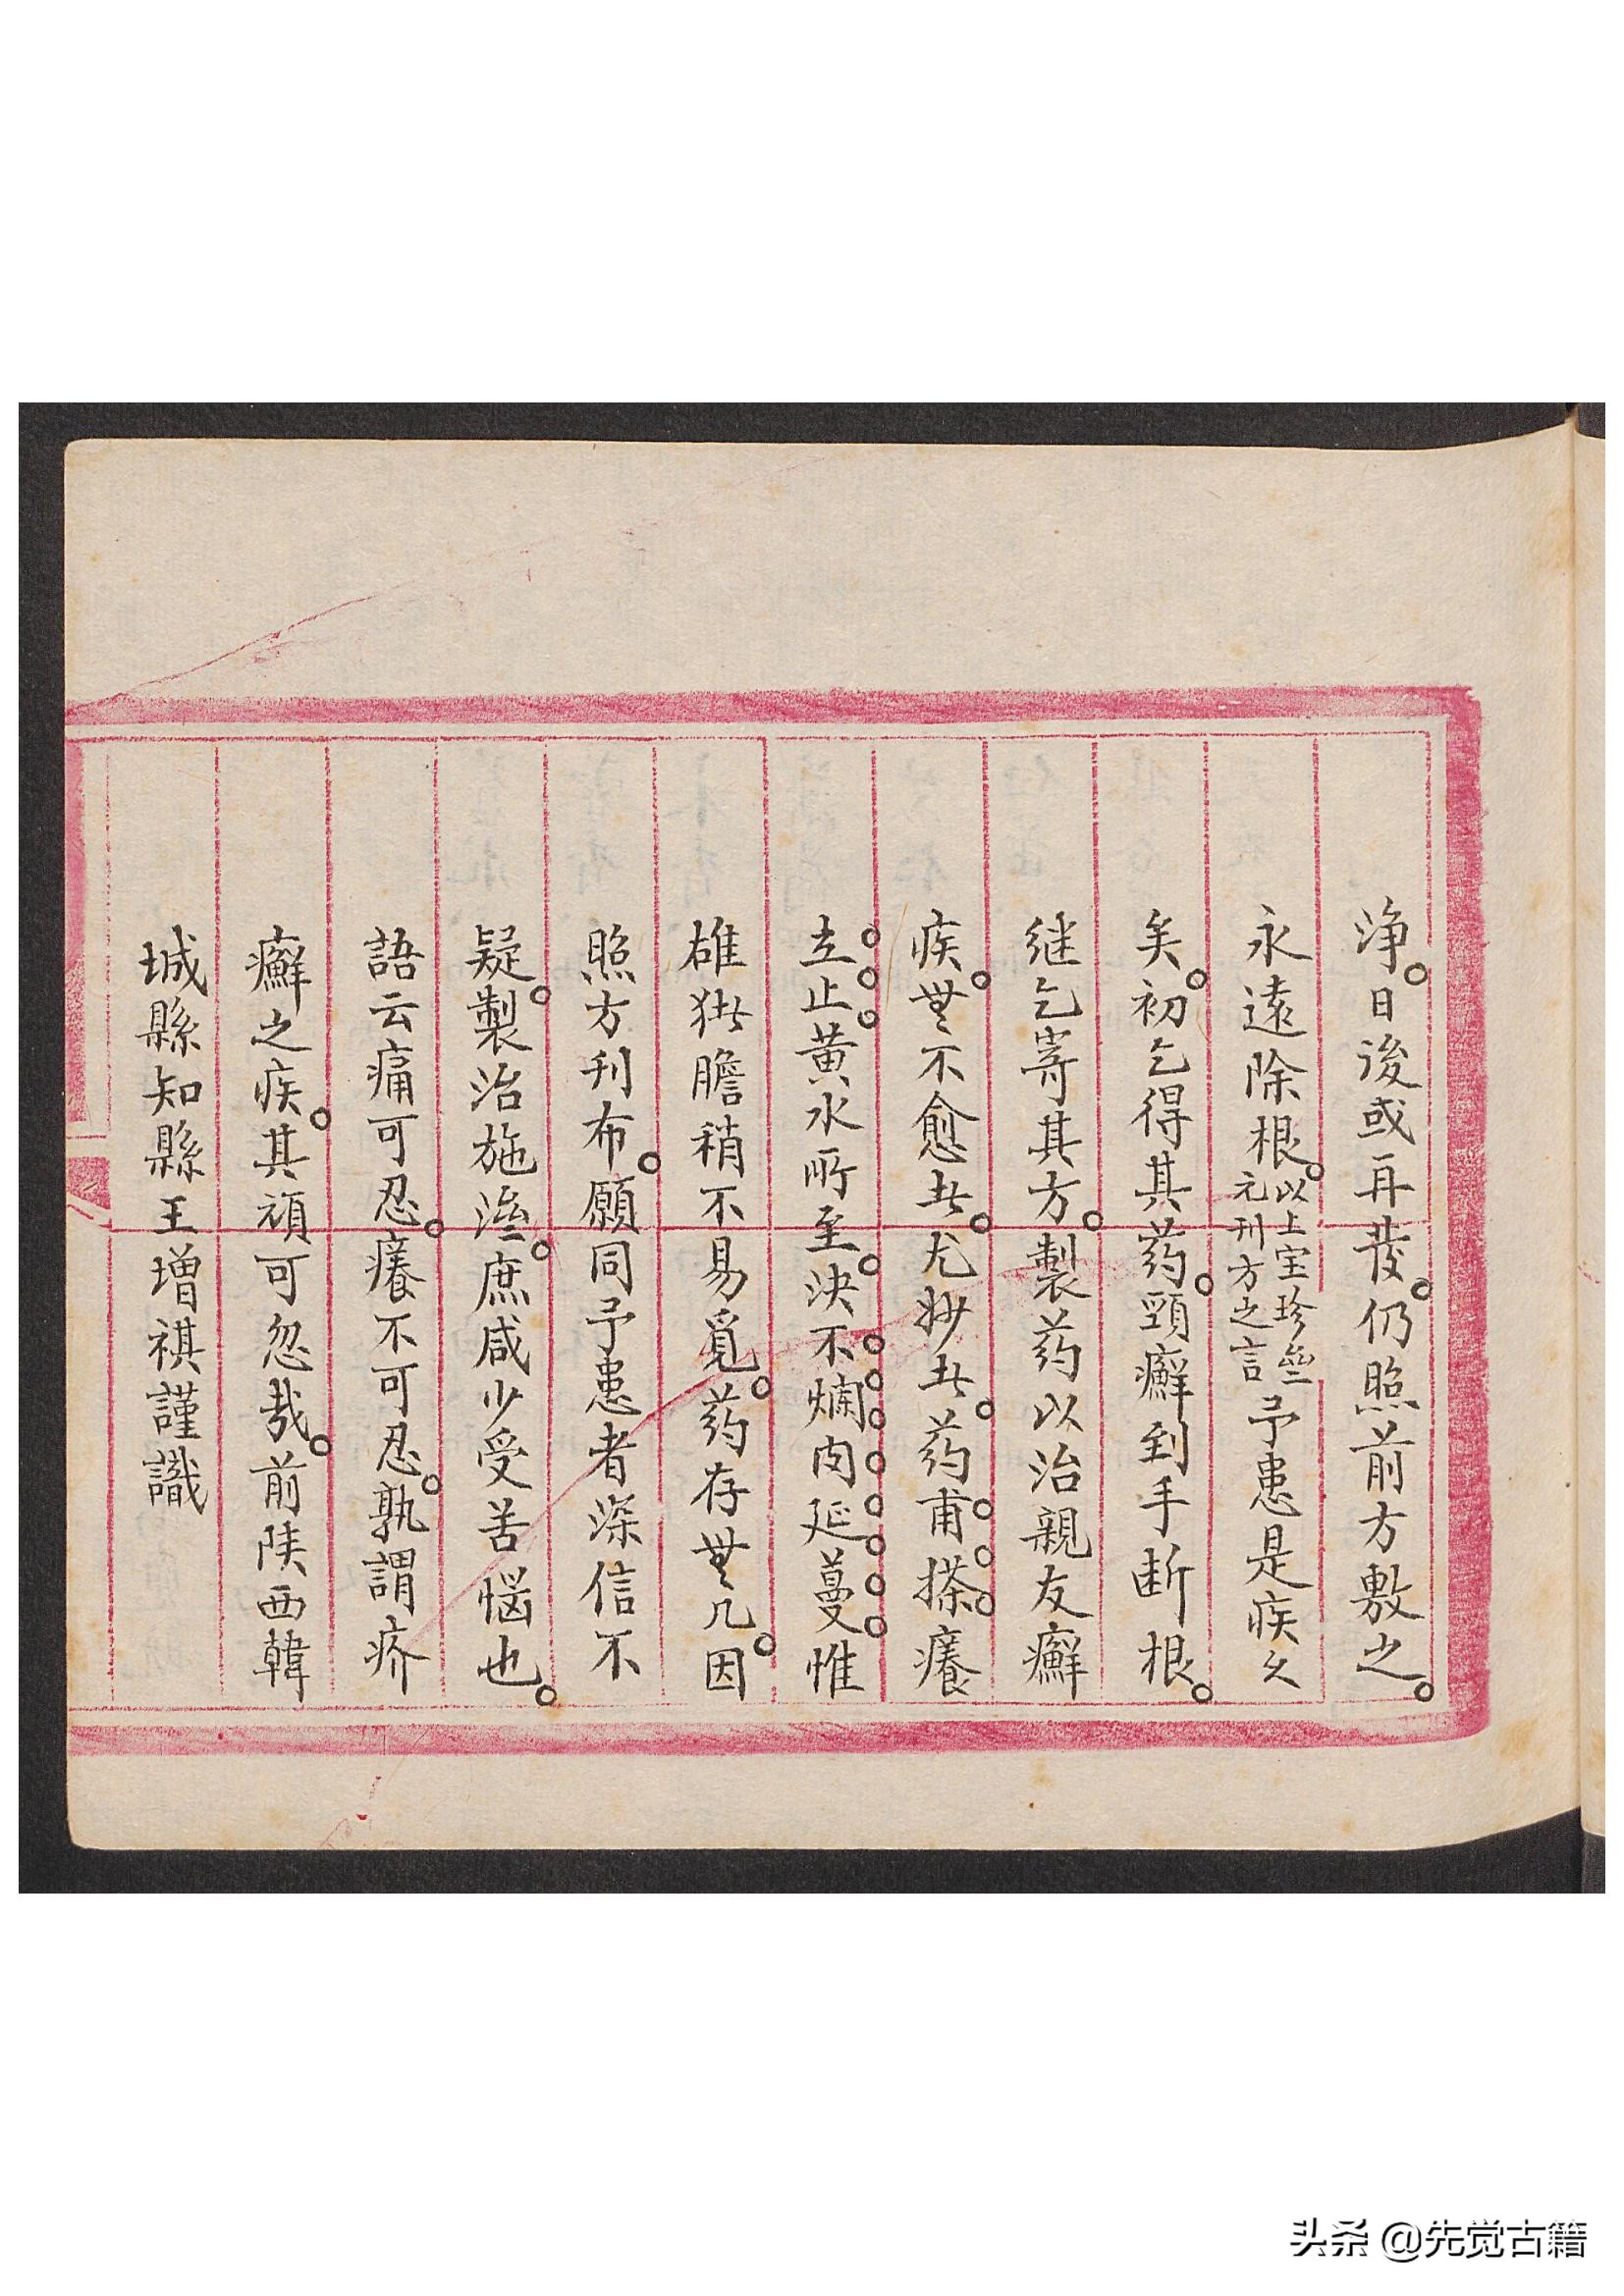 净。日後或再發。仍照前方敷之。
永遠除根。以上宝珍齋
元刊方之言予患是疾久
矣。初乞得其药。頸癬到手断根。
継乞寄其方。製药以治親友癬
疾。無不愈者。尤妙者。药甫搽。癢
立止。黄水所至。决不爛肉延蔓。惟
雄㹠膽稍不易覓。药存無几。因
照方刊布。願同予患者深信不
疑。製治施治。庶咸少受苦惱也。
語云痛可忍。癢不可忍。孰謂疥
癬之疾。其頑可忽哉。前陕西韓
城縣知縣王增祺謹識
头条 @先觉古籍